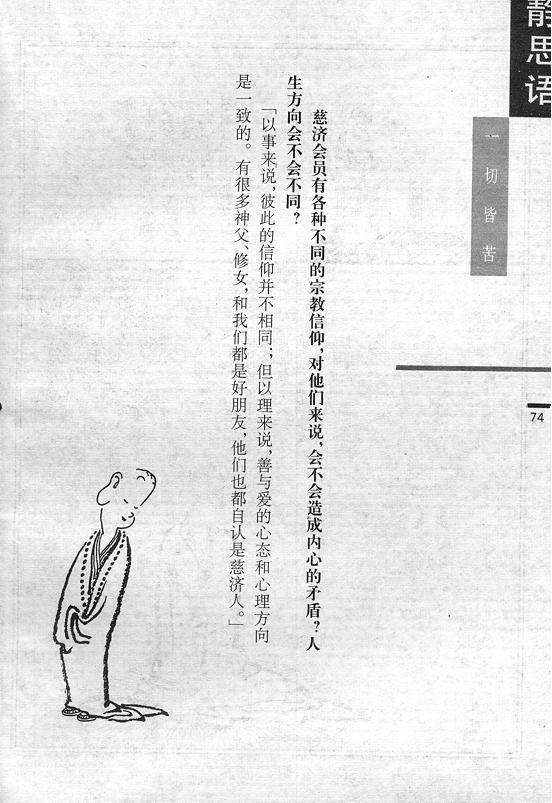 静思语
一切皆苦
74
慈济会员有各种不同的宗教信仰，对他们来说，会不会造成内心的矛盾？人
生方向会不会不同？
「以事来说，彼此的信仰并不相同；但以理来说，善与爱的心态和心理方向
是一致的。有很多神父、修女，和我们都是好朋友，他们也都自认是慈济人。」